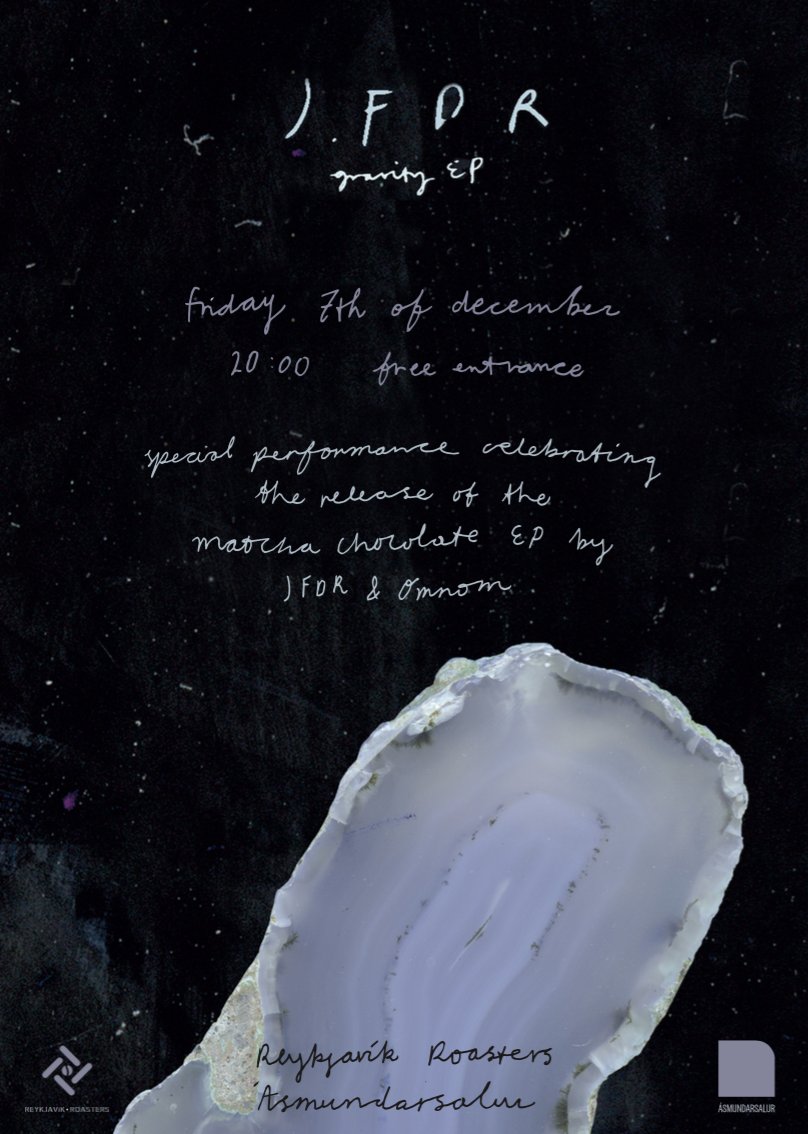 JFDR
gravity EP
friday 7th of december
20:00 free entrance
special performance celebrating
the release of the
matcha chocolate EP by
JFDR & Omnom
Reykjavík Roasters
Ásmundarsalur
REYKJAVIK•ROASTERS
ÁSMUNDARSALUR